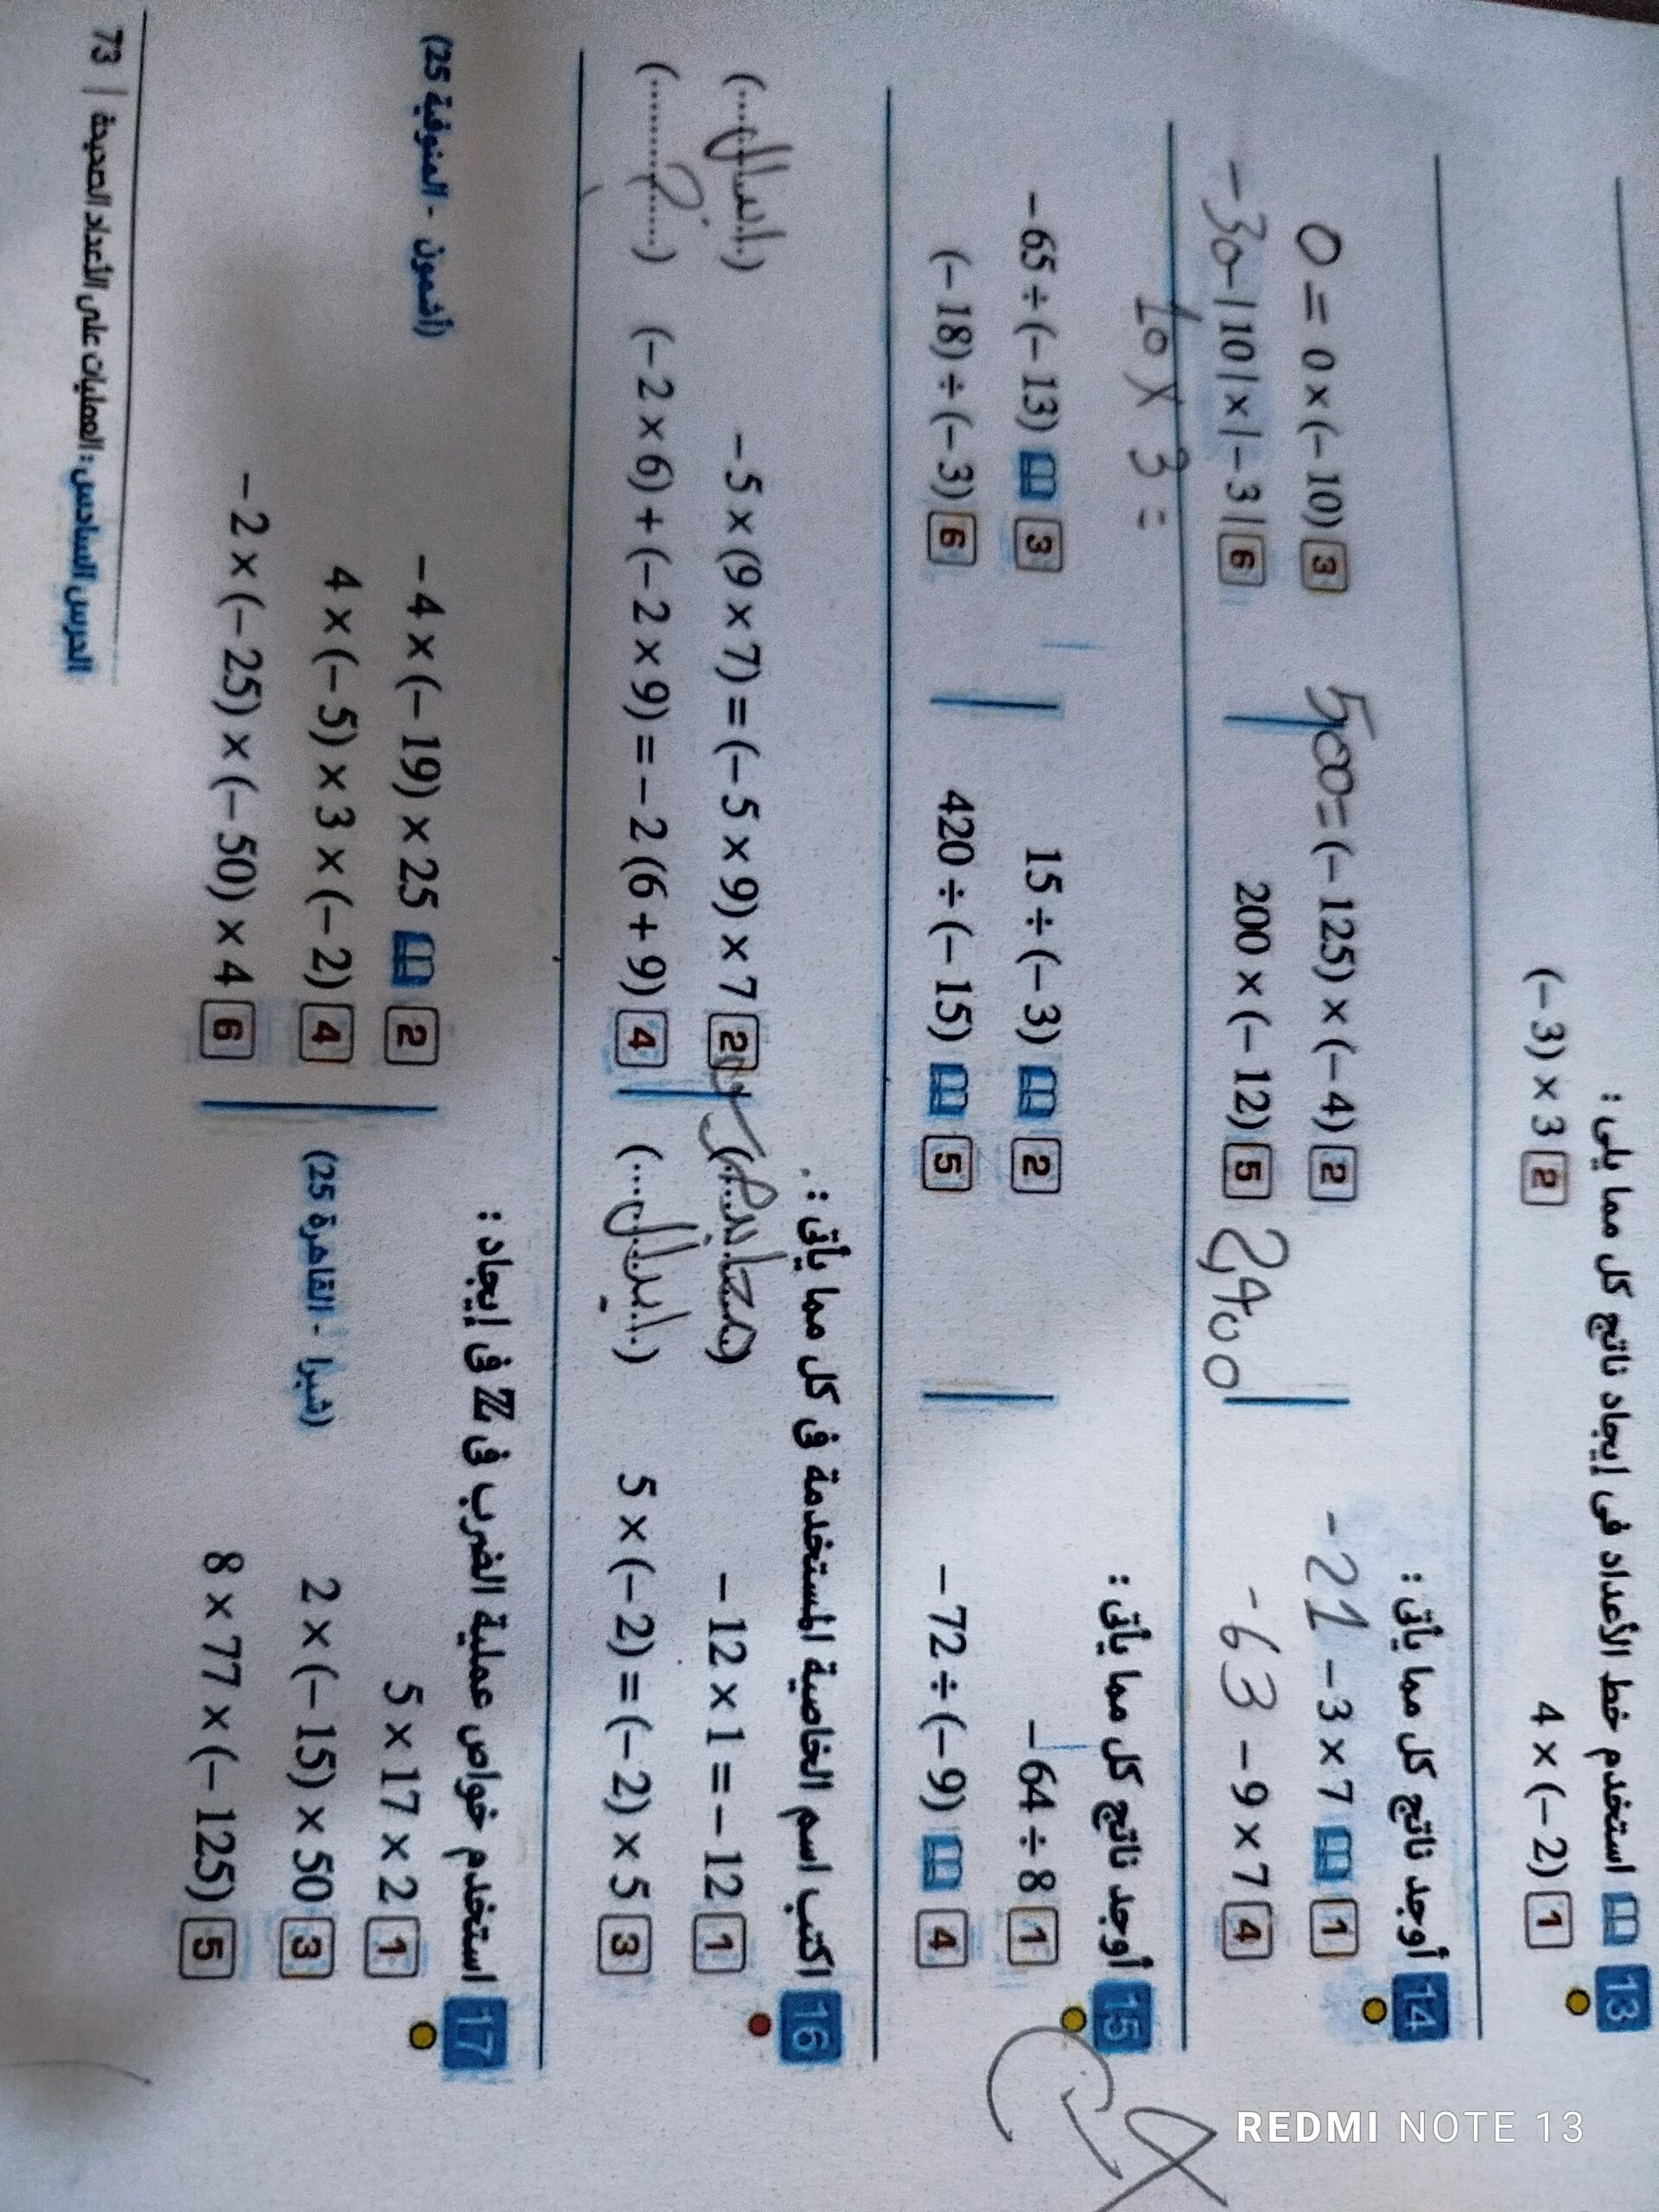 13 استخدم خط الأعداد فى إيجاد ناتج كل مما يلى :
1 4 × (− 2) 2 (− 3) × 3
14 أوجد ناتج كل مما يأتى :
1 − 3 × 7 - 21 2 (− 125) × (− 4) = 500 3 0 × (− 10) = 0
4 − 9 × 7 - 63 5 200 × (− 12) 2,400 6 | 10 | × | − 3 | - 30
10 × 3 =
15 أوجد ناتج كل مما يأتى :
1 − 64 ÷ 8 2 15 ÷ (− 3) 3 − 65 ÷ (− 13)
4 − 72 ÷ (− 9) 5 420 ÷ (− 15) 6 (− 18) ÷ (− 3)
16 اكتب اسم الخاصية المستخدمة فى كل مما يأتى :
1 − 12 × 1 = − 12 ( ) 2 − 5 × (9 × 7) = (− 5 × 9) × 7 ( )
3 5 × (− 2) = (− 2) × 5 (ابدال) 4 (− 2 × 6) + (− 2 × 9) = − 2 (6 + 9) (.............)
17 استخدم خواص عملية الضرب فى ℤ فى إيجاد :
1 5 × 17 × 2 2 − 4 × (− 19) × 25 (أشمون - المنوفية 25)
3 2 × (− 15) × 50 (شبرا - القاهرة 25) 4 4 × (− 5) × 3 × (− 2)
5 8 × 77 × (− 125) 6 − 2 × (− 25) × (− 50) × 4
الدرس السادس: العمليات على الأعداد الصحيحة | 73
REDMI NOTE 13